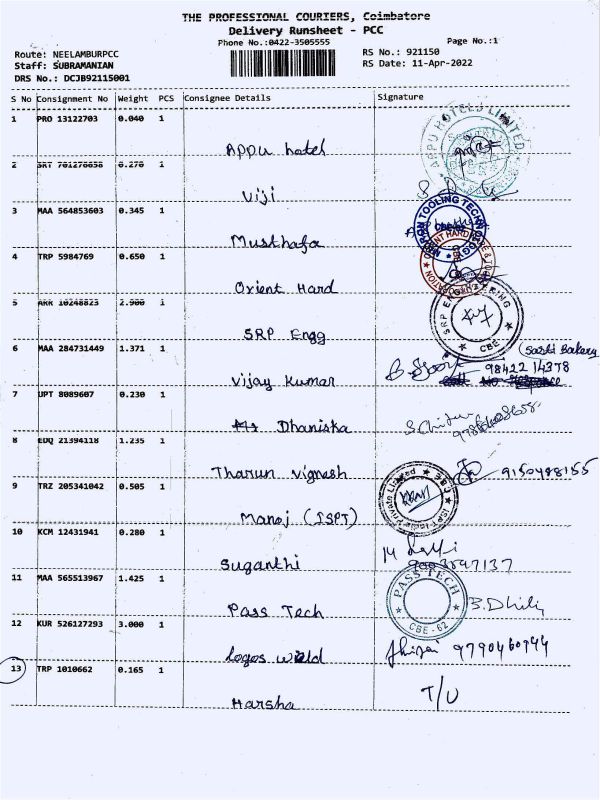 THE PROFESSIONAL COURIERS, Coimbatore
Delivery Runsheet - PCC
Phone No.:0422-3505555
Page No.:1
Route: NEELAMBURPCC
RS No.: 921150
Staff: SUBRAMANIAN
RS Date: 11-Apr-2022
DRS No.: DCJB92115001
S No Consignment No Weight PCS Consignee Details Signature
1 PRO 13122703 0.040 1
APPU hotel
APPU HOTELS LIMITED
2 SRT 1
Viji
3 MAA 564853603 0.345 1
Musthafa
4 TRP 5984769 0.650 1
Orient Hard
5 ARK 16248823 2.900 1
SRP Engg
SRP ENGINEERING CBE
6 MAA 284731449 1.371 1
Vijay Kumar
98422 14378
7 UPT 8089607 0.230 1
Dhaniska
8 EDQ 21394118 1.235 1
Tharun Vignesh
9150498155
9 TRZ 205341042 0.505 1
Manoj (ISPT)
10 KCM 12431941 0.280 1
Suganthi
11 MAA 565513967 1.425 1
Pass Tech
PASS TECH CBE - 62
B. Dhily
12 KUR 526127293 3.000 1
Logos
9790460944
13 TRP 1010662 0.165 1
Harsha
T/U